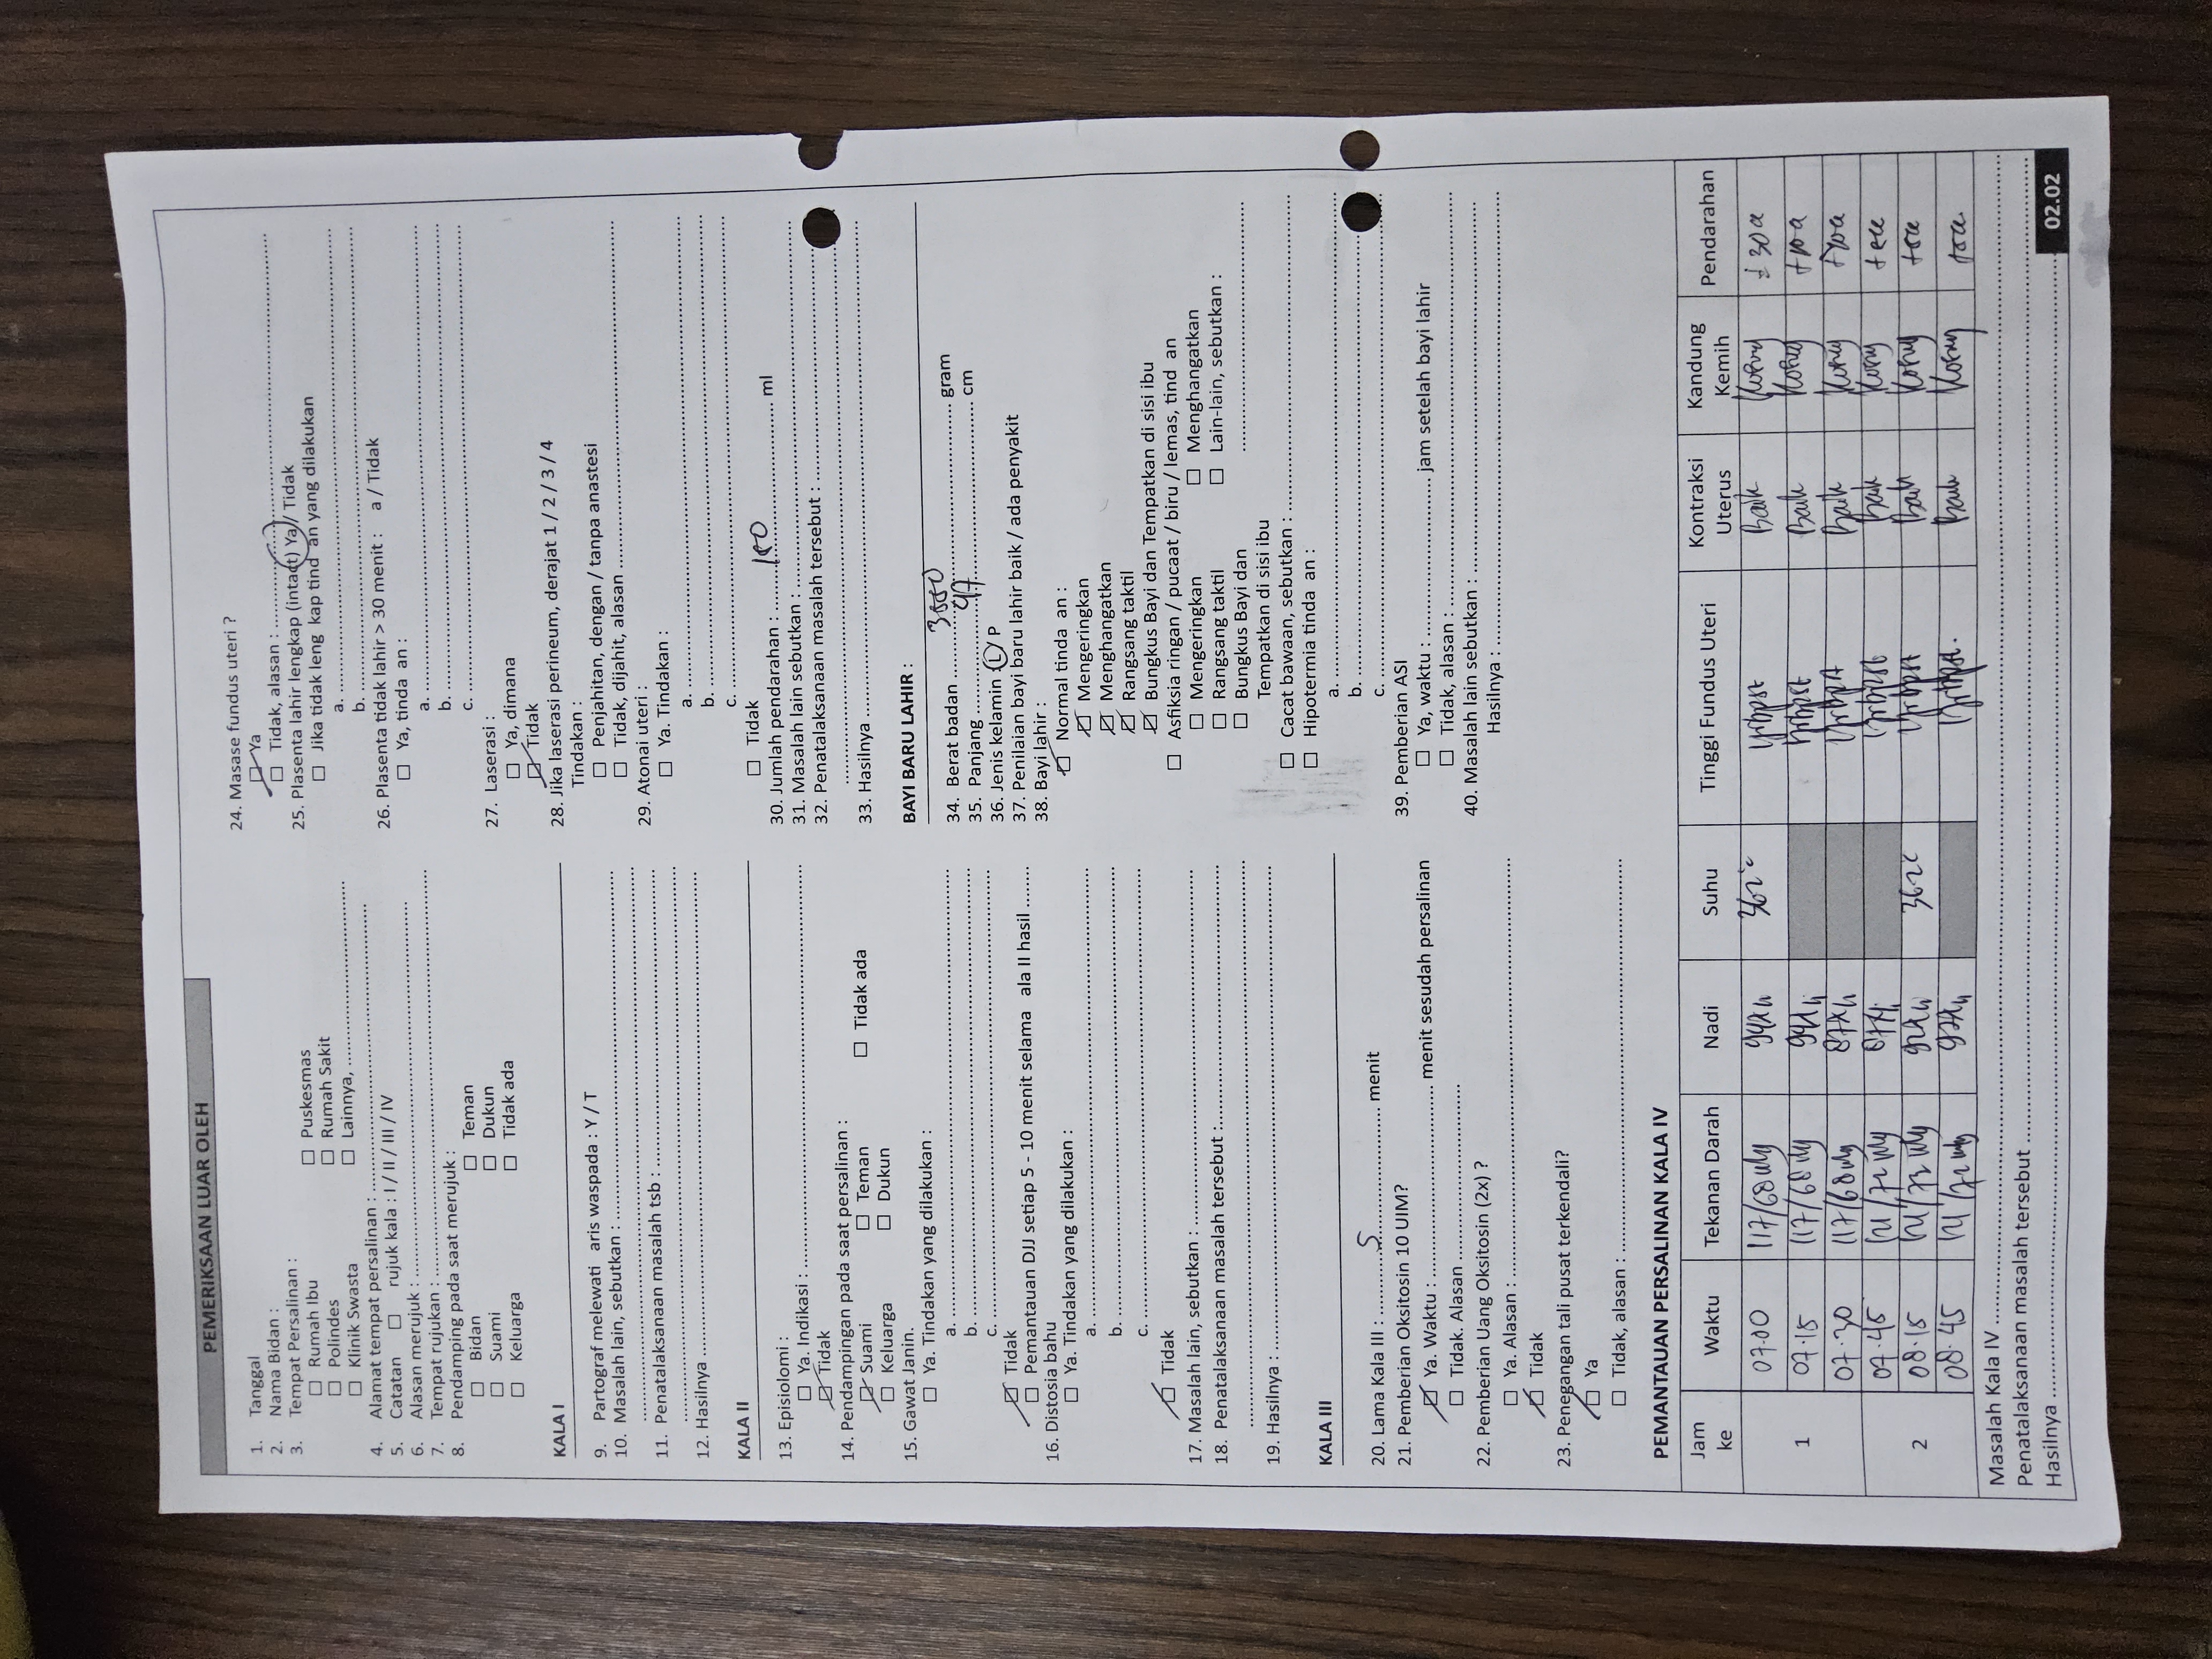 PEMERIKSAAN LUAR OLEH
1. Tanggal
2. Nama Bidan :
3. Tempat Persalinan :
☐ Rumah Ibu ☐ Puskesmas
☐ Polindes ☐ Rumah Sakit
☐ Klinik Swasta ☐ Lainnya, ....................
4. Alamat tempat persalinan : ....................
5. Catatan ☐ rujuk kala : I / II / III / IV
6. Alasan merujuk : ....................
7. Tempat rujukan : ....................
8. Pendamping pada saat merujuk :
☐ Bidan ☐ Teman
☐ Suami ☐ Dukun
☐ Keluarga ☐ Tidak ada
KALA I
9. Partograf melewati aris waspada : Y / T
10. Masalah lain, sebutkan : ....................
....................
11. Penatalaksanaan masalah tsb : ....................
....................
12. Hasilnya ....................
KALA II
13. Episiolomi :
☐ Ya. Indikasi : ....................
☑ Tidak
14. Pendampingan pada saat persalinan :
☑ Suami ☐ Teman ☐ Tidak ada
☐ Keluarga ☐ Dukun
15. Gawat Janin.
☐ Ya. Tindakan yang dilakukan :
a. ....................
b. ....................
c. ....................
☑ Tidak
☐ Pemantauan DJJ setiap 5 - 10 menit selama ala II hasil ........
16. Distosia bahu
☐ Ya. Tindakan yang dilakukan :
a. ....................
b. ....................
c. ....................
☑ Tidak
17. Masalah lain, sebutkan : ....................
18. Penatalaksanaan masalah tersebut : ....................
....................
19. Hasilnya : ....................
KALA III
20. Lama Kala III : ....5.... menit
21. Pemberian Oksitosin 10 UIM?
☑ Ya. Waktu : .................... menit sesudah persalinan
☐ Tidak. Alasan ....................
22. Pemberian Uang Oksitosin (2x) ?
☐ Ya. Alasan : ....................
☑ Tidak
23. Penegangan tali pusat terkendali?
☑ Ya
☐ Tidak, alasan : ....................
24. Masase fundus uteri ?
☑ Ya
☐ Tidak, alasan : ....................
25. Plasenta lahir lengkap (intact) Ya / Tidak
☐ Jika tidak leng kap tind an yang dilakukan
a. ....................
b. ....................
26. Plasenta tidak lahir > 30 menit : a / Tidak
☐ Ya, tinda an :
a. ....................
b. ....................
c. ....................
27. Laserasi :
☐ Ya, dimana
☑ Tidak
28. Jika laserasi perineum, derajat 1 / 2 / 3 / 4
Tindakan :
☐ Penjahitan, dengan / tanpa anastesi
☐ Tidak, dijahit, alasan ....................
29. Atonai uteri :
☐ Ya. Tindakan :
a. ....................
b. ....................
c. ....................
☐ Tidak
30. Jumlah pendarahan : .................... ml
31. Masalah lain sebutkan : ....................
32. Penatalaksanaan masalah tersebut : ....................
....................
33. Hasilnya ....................
BAYI BARU LAHIR :
34. Berat badan .................... gram
35. Panjang ....47.... cm
36. Jenis kelamin L / P
37. Penilaian bayi baru lahir baik / ada penyakit
38. Bayi lahir :
☑ Normal tinda an :
☑ Mengeringkan
☑ Menghangatkan
☑ Rangsang taktil
☑ Bungkus Bayi dan Tempatkan di sisi ibu
☐ Asfiksia ringan / pucaat / biru / lemas, tind an
☐ Mengeringkan ☐ Menghangatkan
☐ Rangsang taktil ☐ Lain-lain, sebutkan :
☐ Bungkus Bayi dan ....................
Tempatkan di sisi ibu
☐ Cacat bawaan, sebutkan : ....................
☐ Hipotermia tinda an :
a. ....................
b. ....................
c. ....................
39. Pemberian ASI
☐ Ya, waktu : .................... jam setelah bayi lahir
☐ Tidak, alasan : ....................
40. Masalah lain sebutkan : ....................
Hasilnya : ....................
PEMANTAUAN PERSALINAN KALA IV
Jam ke Waktu Tekanan Darah Nadi Suhu Tinggi Fundus Uteri Kontraksi Uterus Kandung Kemih Pendarahan
1 07.00 117/68 Baik Kosong
07.15 117/68 Baik Kosong
07.30 117/68 Baik Kosong
2 07.45 Baik Kosong
08.15 Baik Kosong
08.45 Baik Kosong
Masalah Kala IV ....................
Penatalaksanaan masalah tersebut ....................
Hasilnya ....................
02.02